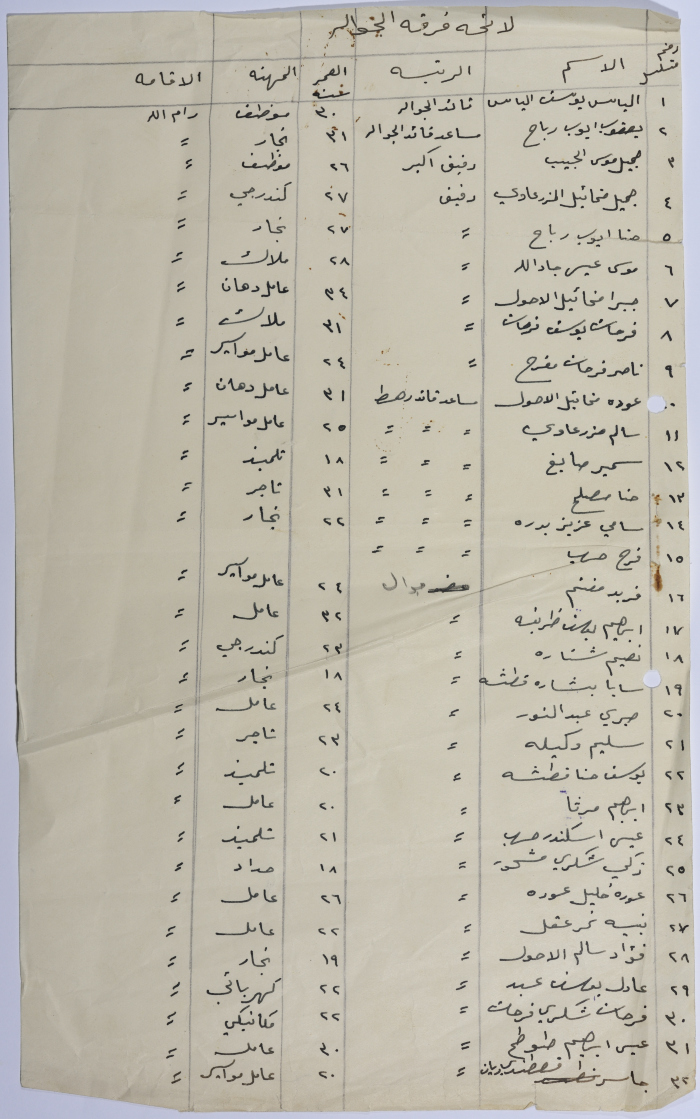 لائحة فرقة الجوالة
رقم متسلسل الاسم الرتبه العمر سنه المهنه الاقامه
١ الياس يوسف الياس قائد الجواله ٣٠ موظف رام الله
٢ يعقوب ايوب رباح مساعد قائد الجواله ٣١ نجار〃
٣ جميل موسى الحبيب رفيق اكبر ٢٦ موظف 〃
٤ جميل مخائيل المزرعاوي رفيق ٢٧ كندرجي 〃
٥ حنا ايوب رباح 〃 ٢٧ نجار 〃
٦ موسى عيسى جادالله 〃 ٢٨ ملاك 〃
٧ جبرا مخائيل الاحول 〃 ٣٤ عامل دهان 〃
٨ فرحات يوسف فرحات 〃 ٣١ ملاك 〃
٩ ناصر فرحات مفرح 〃 ٢٤ عامل مواسير 〃
٠ عوده مخائيل الاحول مساعد قائد رهط ٣١ عامل دهان 〃
١١ سالم مزرعاوي 〃 〃 〃 ٢٥ عامل مواسير 〃
١٢ سمير صايغ 〃 〃 〃 ١٨ تلميذ 〃
١٣ حنا مصلح 〃 〃 〃 ٣١ تاجر 〃
١٤ سامي عزيز بدره 〃 〃 〃 ٢٢ نجار 〃
١٥ فرح حسب 〃 〃 〃
١٦ فريد مغنم جوال ٢٤ عامل مواسير 〃
١٧ ابرهيم يوسف طريفه 〃 ٣٢ عامل 〃
١٨ نصيم شتاره 〃 ٢٣ كندرجي 〃
١٩ سابا بشاره قطشه 〃 ١٨ نجار 〃
٢٠ صبري عبد النور 〃 ٢٤ عامل 〃
٢١ سليم وكيله 〃 ٢٣ تاجر 〃
٢٢ يوسف حنا قطشه 〃 ٢٠ تلميذ 〃
٢٣ ابرهيم مرقا 〃 ٢٠ عامل 〃
٢٤ عيسى اسكندر حسب 〃 ٢١ تلميذ 〃
٢٥ زكي شكري مشحور 〃 ١٨ حداد 〃
٢٦ عوده خليل عوده 〃 ٢٦ عامل 〃
٢٧ نبيه نمر عقل 〃 ٢٢ عامل 〃
٢٨ فؤاد سالم الاحول 〃 ١٩ نجار 〃
٢٩ عادل يوسف عبد 〃 ٢٢ كهربائي 〃
٣٠ فرحات شكري فرحات 〃 ٢٢ مكانيكي 〃
٣١ عيسى ابرهيم طوطح 〃 ٣٠ عامل 〃
٣٢ جاسر 〃 ٢٠ عامل مواسير 〃